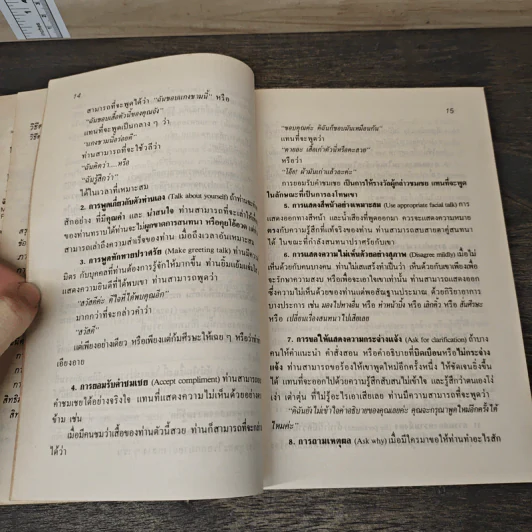 14
สามารถที่จะพูดได้ว่า "ฉันชอบแกงชามนี้" หรือ
"ฉันชอบเสื้อตัวนี้ของคุณจัง"
แทนที่จะพูดเป็นกลาง ๆ ว่า
"แกงชามนี้อร่อยดี"
ท่านสามารถที่จะใช้วลีว่า
"ฉันคิดว่า...หรือ
"ฉันรู้สึกว่า"
ได้ในเวลาที่เหมาะสม
2. การพูดเกี่ยวกับตัวท่านเอง (Talk about yourself) ถ้าท่าน
สึกอย่าง ที่มีคุณค่า และ น่าสนใจ ท่านสามารถที่จะเล่าให้
ของท่านทราบได้ท่านจะ ไม่ผูกขาดการสนทนา หรือคุยโอ้อวด
สามารถเล่าถึงความสำเร็จของท่าน เมื่อถึงเวลาอันเหมาะสม
3. การพูดทักทายปราศรัย (Make greeting talk) ท่านมีความ
มิตร กับบุคคลที่ท่านต้องการรู้จักให้มากขึ้น ท่านยิ้มแย้มแจ่มใส
แสดงความยินดีที่ได้พบเขา ท่านสามารถพูดว่า
"สวัสดีค่ะ ดีใจที่ได้พบคุณอีก"
มากกว่าที่จะกล่าวคำว่า
"สวัสดี"
แต่เพียงอย่างเดียว หรือเพียงแต่ก้มศีรษะให้เฉย ๆ หรือ
เอียงอาย
4. การยอมรับคำชมเชย (Accept compliment) ท่านสามารถ
คำชมเชยได้อย่างจริงใจ แทนที่แสดงความไม่เห็นด้วยอย่าง
ข้าม เช่น
เมื่อมีคนชมว่าเสื้อของท่านตัวนี้สวย ท่านก็สามารถที่จะ
ได้ว่า
15
"ขอบคุณค่ะ ดิฉันก็ชอบมันเหมือนกัน"
แทนที่จะพูดว่า
"หายละ เสื้อเก่าตัวนี้หรือคะสวย"
หรือว่า
"โอ้ย! ผ้ามันเก่าแล้วละค่ะ"
การยอมรับคำชมเชย เป็นการให้รางวัลผู้กล่าวชมเชย แทนที่จะพูด
ในลักษณะที่เป็นการลงโทษเขา
5. การแสดงสีหน้าอย่างเหมาะสม (Use appropriate facial talk) การ
แสดงออกทางสีหน้า และน้ำเสียงที่พูดออกมา ควรจะแสดงความหมาย
ตรงกับความรู้สึกที่แท้จริงของท่าน ท่านสามารถสบสายตาคู่สนทนา
ได้ ในขณะที่กำลังสนทนาปราศรัยกับเขา
6. การแสดงความไม่เห็นด้วยอย่างสุภาพ (Disagree mildly) เมื่อไม่
เห็นด้วยกับคนบางคน ท่านไม่เสแสร้งทำเป็นว่า เห็นด้วยกับเขาเพียงเพื่อ
จะรักษาความสงบ หรือเพื่อจะเอาใจเขาเท่านั้น ท่านสามารถแสดงออก
ซึ่งความไม่เห็นด้วยของท่านแต่พอสัณฐานประมาณ ด้วยกิริยาอาการ
บางประการ เช่น มองไปทางอื่น หรือ ทำหน้านิ่ง หรือ เลิกคิ้ว หรือ สั่นศีรษะ
หรือ เปลี่ยนเรื่องสนทนาไปเสียเลย
7. การขอให้แสดงความกระจ่างแจ้ง (Ask for clarification) ถ้าบาง
คนให้คำแนะนำ คำสั่งสอน หรือคำอธิบายที่บิดเบือนหรือไม่กระจ่าง
แจ้ง ท่านสามารถขอร้องให้เขาพูดใหม่อีกครั้งหนึ่ง ให้ชัดเจนยิ่งขึ้น
ได้ แทนที่จะออกไปด้วยความรู้สึกสับสนไม่เข้าใจ และรู้สึกว่าตนเองโง่
เง่า เต่าตุ่น ที่ไม่รู้อะไรเอาเสียเลย ท่านมีความสามารถที่จะพูดว่า
"ดิฉันยังไม่เข้าใจคำอธิบายของคุณเลยค่ะ คุณจะกรุณาพูดใหม่อีกครั้งได้
ไหมค่ะ"
8. การถามเหตุผล (Ask why) เมื่อมีใครมาขอให้ท่านทำอะไรสัก